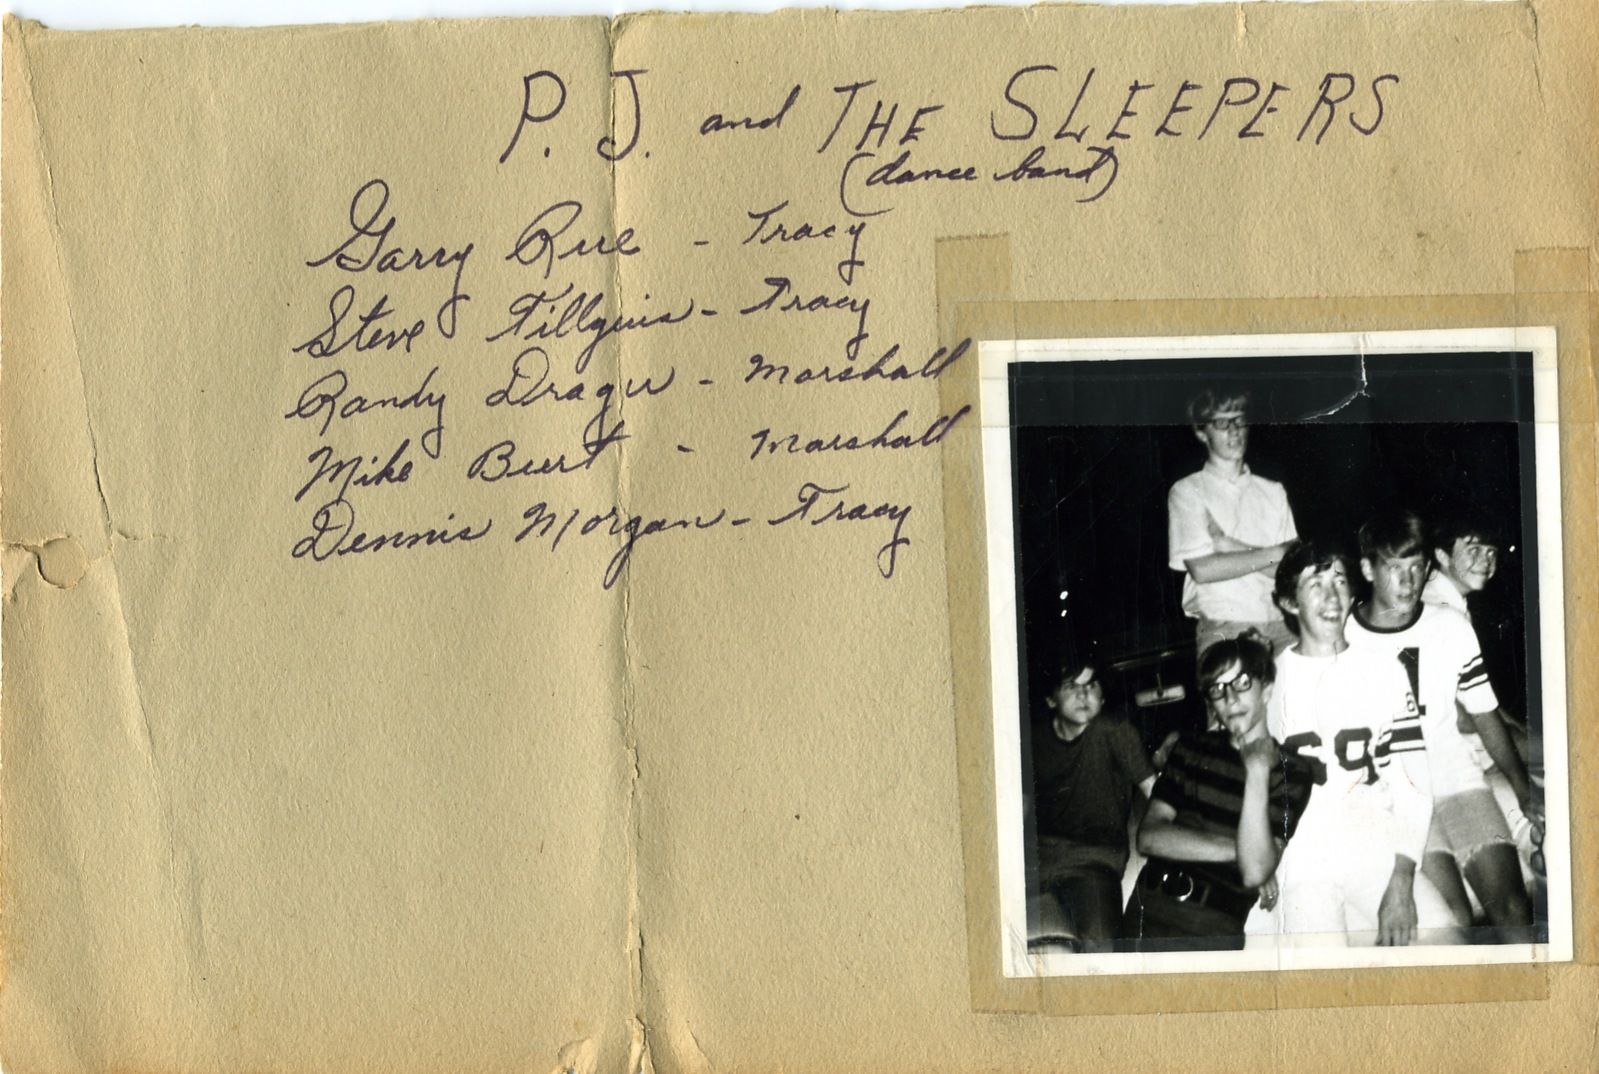 P. J. and THE SLEEPERS
(dance band)
Garry Rue - Tracy
Steve - Tracy
Randy Dragu - Marshall
Mike Burt - Marshall
Dennis Morgan - Tracy
69
1